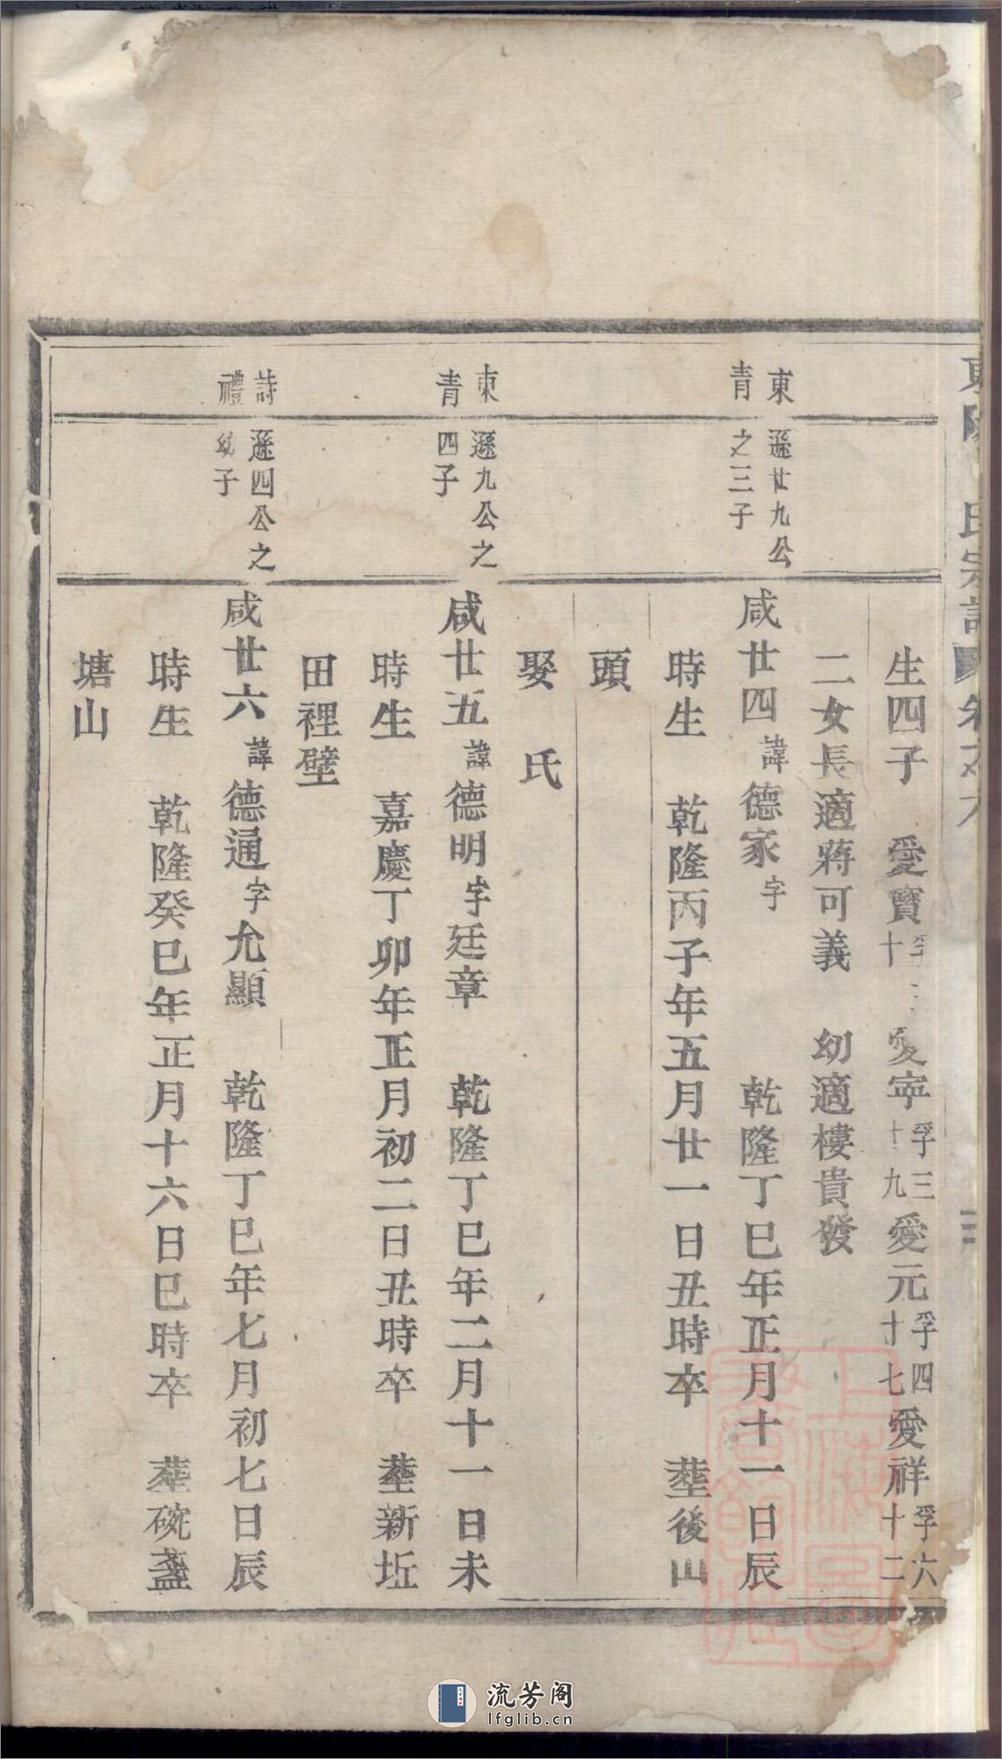 氏宗譜
生四子 愛寶孚十 愛寧孚三十九愛元孚四十七愛祥孚六十二
二女長適蔣可義 幼適樓貴發
東青
遜廿九公之三子
咸廿四諱德家字 乾隆丁巳年正月十一日辰
時生 乾隆丙子年五月廿一日丑時卒 塟後山
頭
娶 氏
東青
遜九公之四子
咸廿五諱德明字廷章 乾隆丁巳年二月十一日未
時生 嘉慶丁卯年正月初二日丑時卒 塟新坵
田裡壁
詩禮
遜四公之幼子
咸廿六諱德通字允顯 乾隆丁巳年七月初七日辰
時生 乾隆癸巳年正月十六日巳時卒 塟碗盞
塘山
流芳阁
lfglib.cn